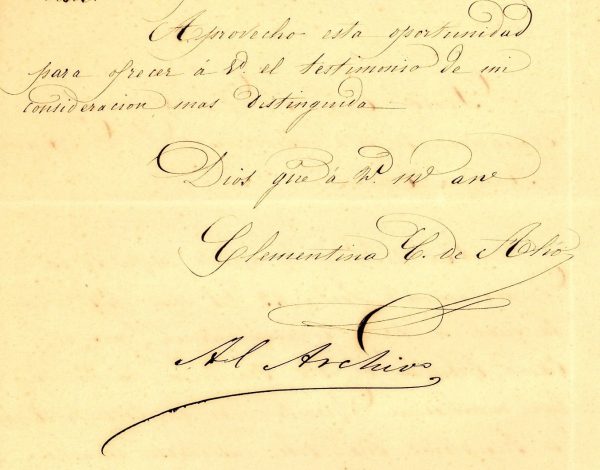 Aprovecho esta oportunidad
para ofrecer á Vd. el testimonio de mi
consideracion mas distinguida
Dios gue á Vd. ms. ans.
Clementina C. de Alió
Al Archivo